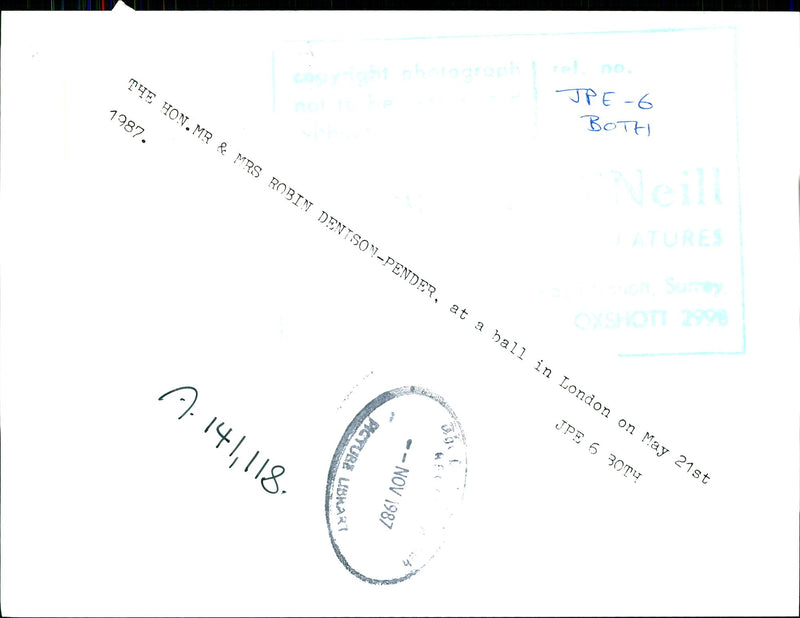 copyright photograph
not to be
ref. no.
JPE-6
BOTH
Neill
FEATURES
Surrey
OXSHOTT 2998
THE HON. MR & MRS ROBIN DENISON-PENDER, at a ball in London on May 21st
1987.
JPE 6 BOTH
A. 141,118.
-- NOV 1987
PICTURE LIBRARY